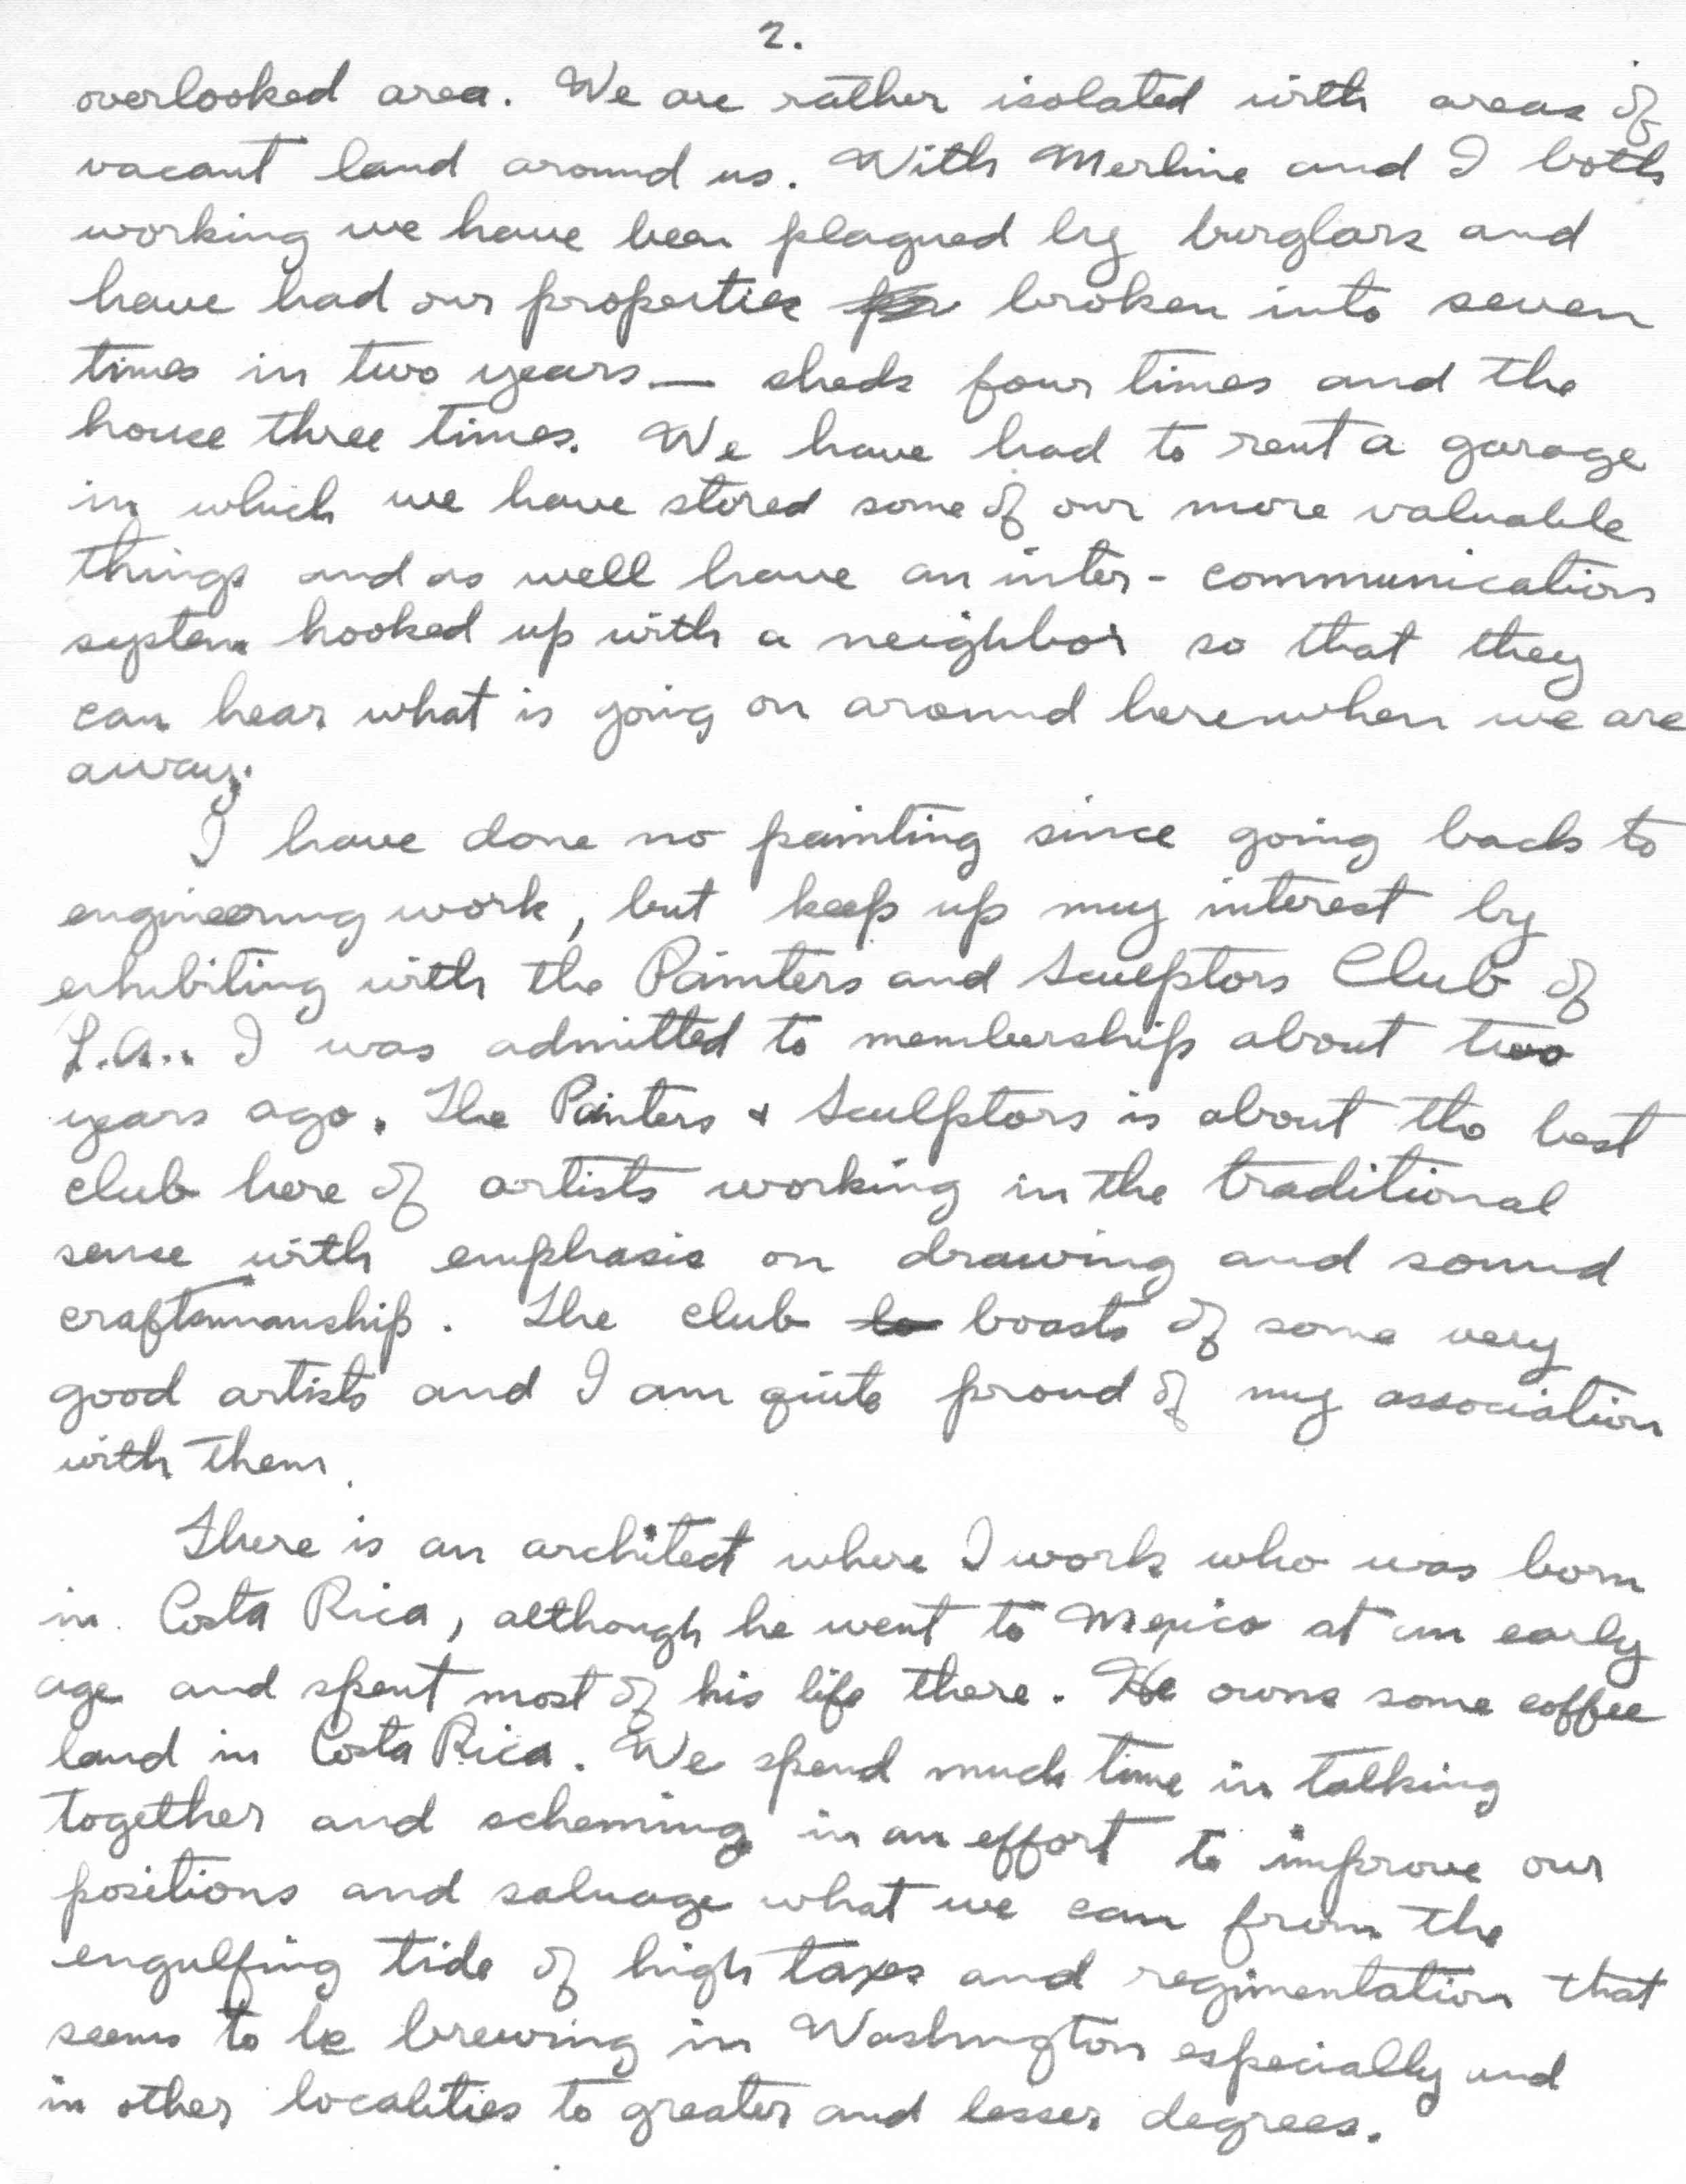 2.
overlooked area. We are rather isolated with areas of
vacant land around us. With Merline and I both
working we have been plagued by burglars and
have had our properties broken into seven
times in two years — sheds four times and the
house three times. We have had to rent a garage
in which we have stored some of our more valuable
things and as well have an inter-communication
system hooked up with a neighbor so that they
can hear what is going on around here when we are
away.
I have done no painting since going back to
engineering work, but keep up my interest by
exhibiting with the Painters and Sculptors Club of
L.A.. I was admitted to membership about two
years ago. The Painters & Sculptors is about the best
club here of artists working in the traditional
sense with emphasis on drawing and sound
craftsmanship. The club boasts of some very
good artists and I am quite proud of my association
with them.
There is an architect where I work who was born
in Costa Rica, although he went to Mexico at an early
age and spent most of his life there. He owns some coffee
land in Costa Rica. We spend much time in talking
together and scheming in an effort to improve our
positions and salvage what we can from the
engulfing tide of high taxes and regimentation that
seems to be brewing in Washington especially and
in other localities to greater and lesser degrees.